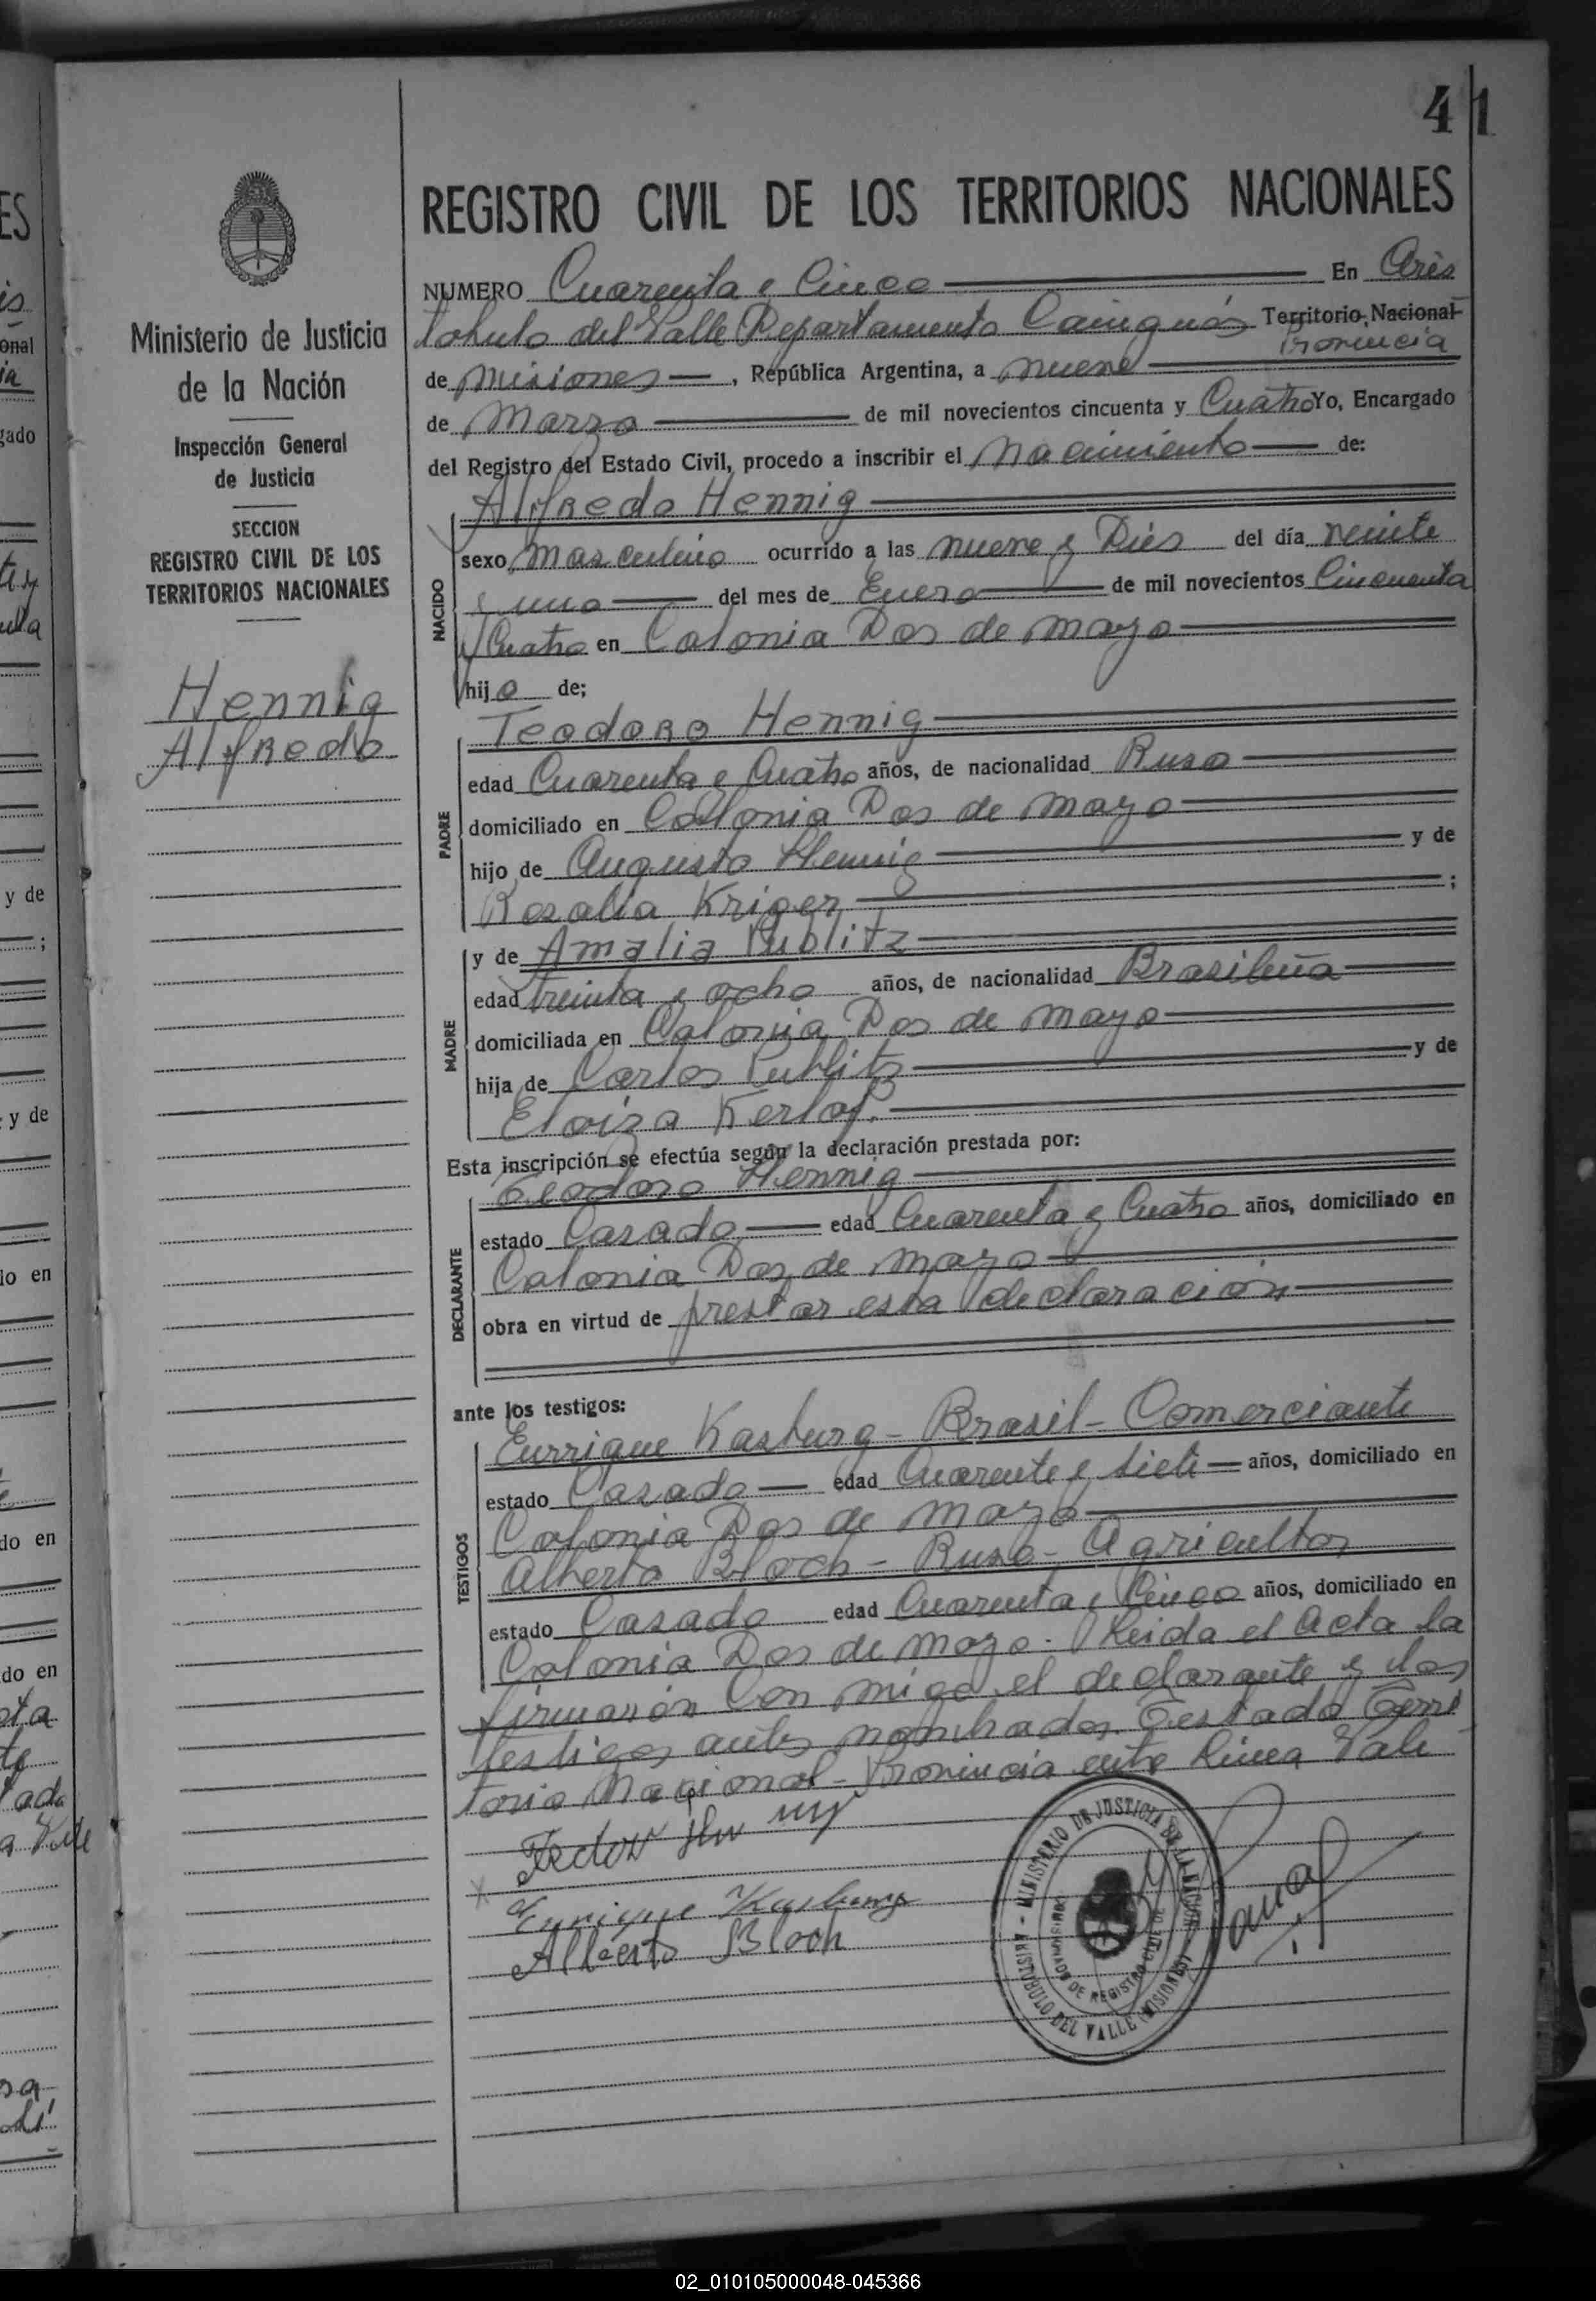 41
REGISTRO CIVIL DE LOS TERRITORIOS NACIONALES
Ministerio de Justicia
de la Nación
Inspección General
de Justicia
SECCION
REGISTRO CIVIL DE LOS
TERRITORIOS NACIONALES
Hennig
Alfredo
NUMERO Cuarenta y Cinco En Aris
tobulo del Valle Departamento Cainguás Territorio Nacional
Provincia
de Misiones, República Argentina, a nueve
de Marzo de mil novecientos cincuenta y Cuatro Yo, Encargado
del Registro del Estado Civil, procedo a inscribir el Nacimiento de:
NACIDO
Alfredo Hennig
sexo Masculino ocurrido a las nueve y Diés del día veinte
y uno del mes de Enero de mil novecientos Cincuenta
y Cuatro en Colonia Dos de mayo
hijo de;
PADRE
Teodoro Hennig
edad Cuarenta y Cuatro años, de nacionalidad Ruso
domiciliado en Colonia Dos de mayo
hijo de Augusto Hennig y de
Rosalia Kriger ;
MADRE
y de Amalia Publitz
edad treinta y ocho años, de nacionalidad Brasileña
domiciliada en Colonia Dos de mayo
hija de Carlos Publitz y de
Eloiza Kerlof.
Esta inscripción se efectúa según la declaración prestada por:
DECLARANTE
Teodoro Hennig
estado Casado edad Cuarenta y Cuatro años, domiciliado en
Colonia Dos de mayo
obra en virtud de prestar esta declaración
ante los testigos:
TESTIGOS
Enrrique Kasburg - Brasil - Comerciante
estado Casado edad Cuarenta y siete años, domiciliado en
Colonia Dos de mayo
Alberto Bloch - Ruso - Agricultor
estado Casado edad Cuarenta y Cinco años, domiciliado en
Colonia Dos de mayo. Leida el Acta la
firmaron Con migo el declarante y los
testigos antes nombrados. Testado Terri
torio Nacional - Provincia entre linea Vale
Enrique Kasburg
Alberto Bloch
MINISTERIO DE JUSTICIA DE LA NACION
ARISTOBULO DEL VALLE (MISIONES)
02_010105000048-045366